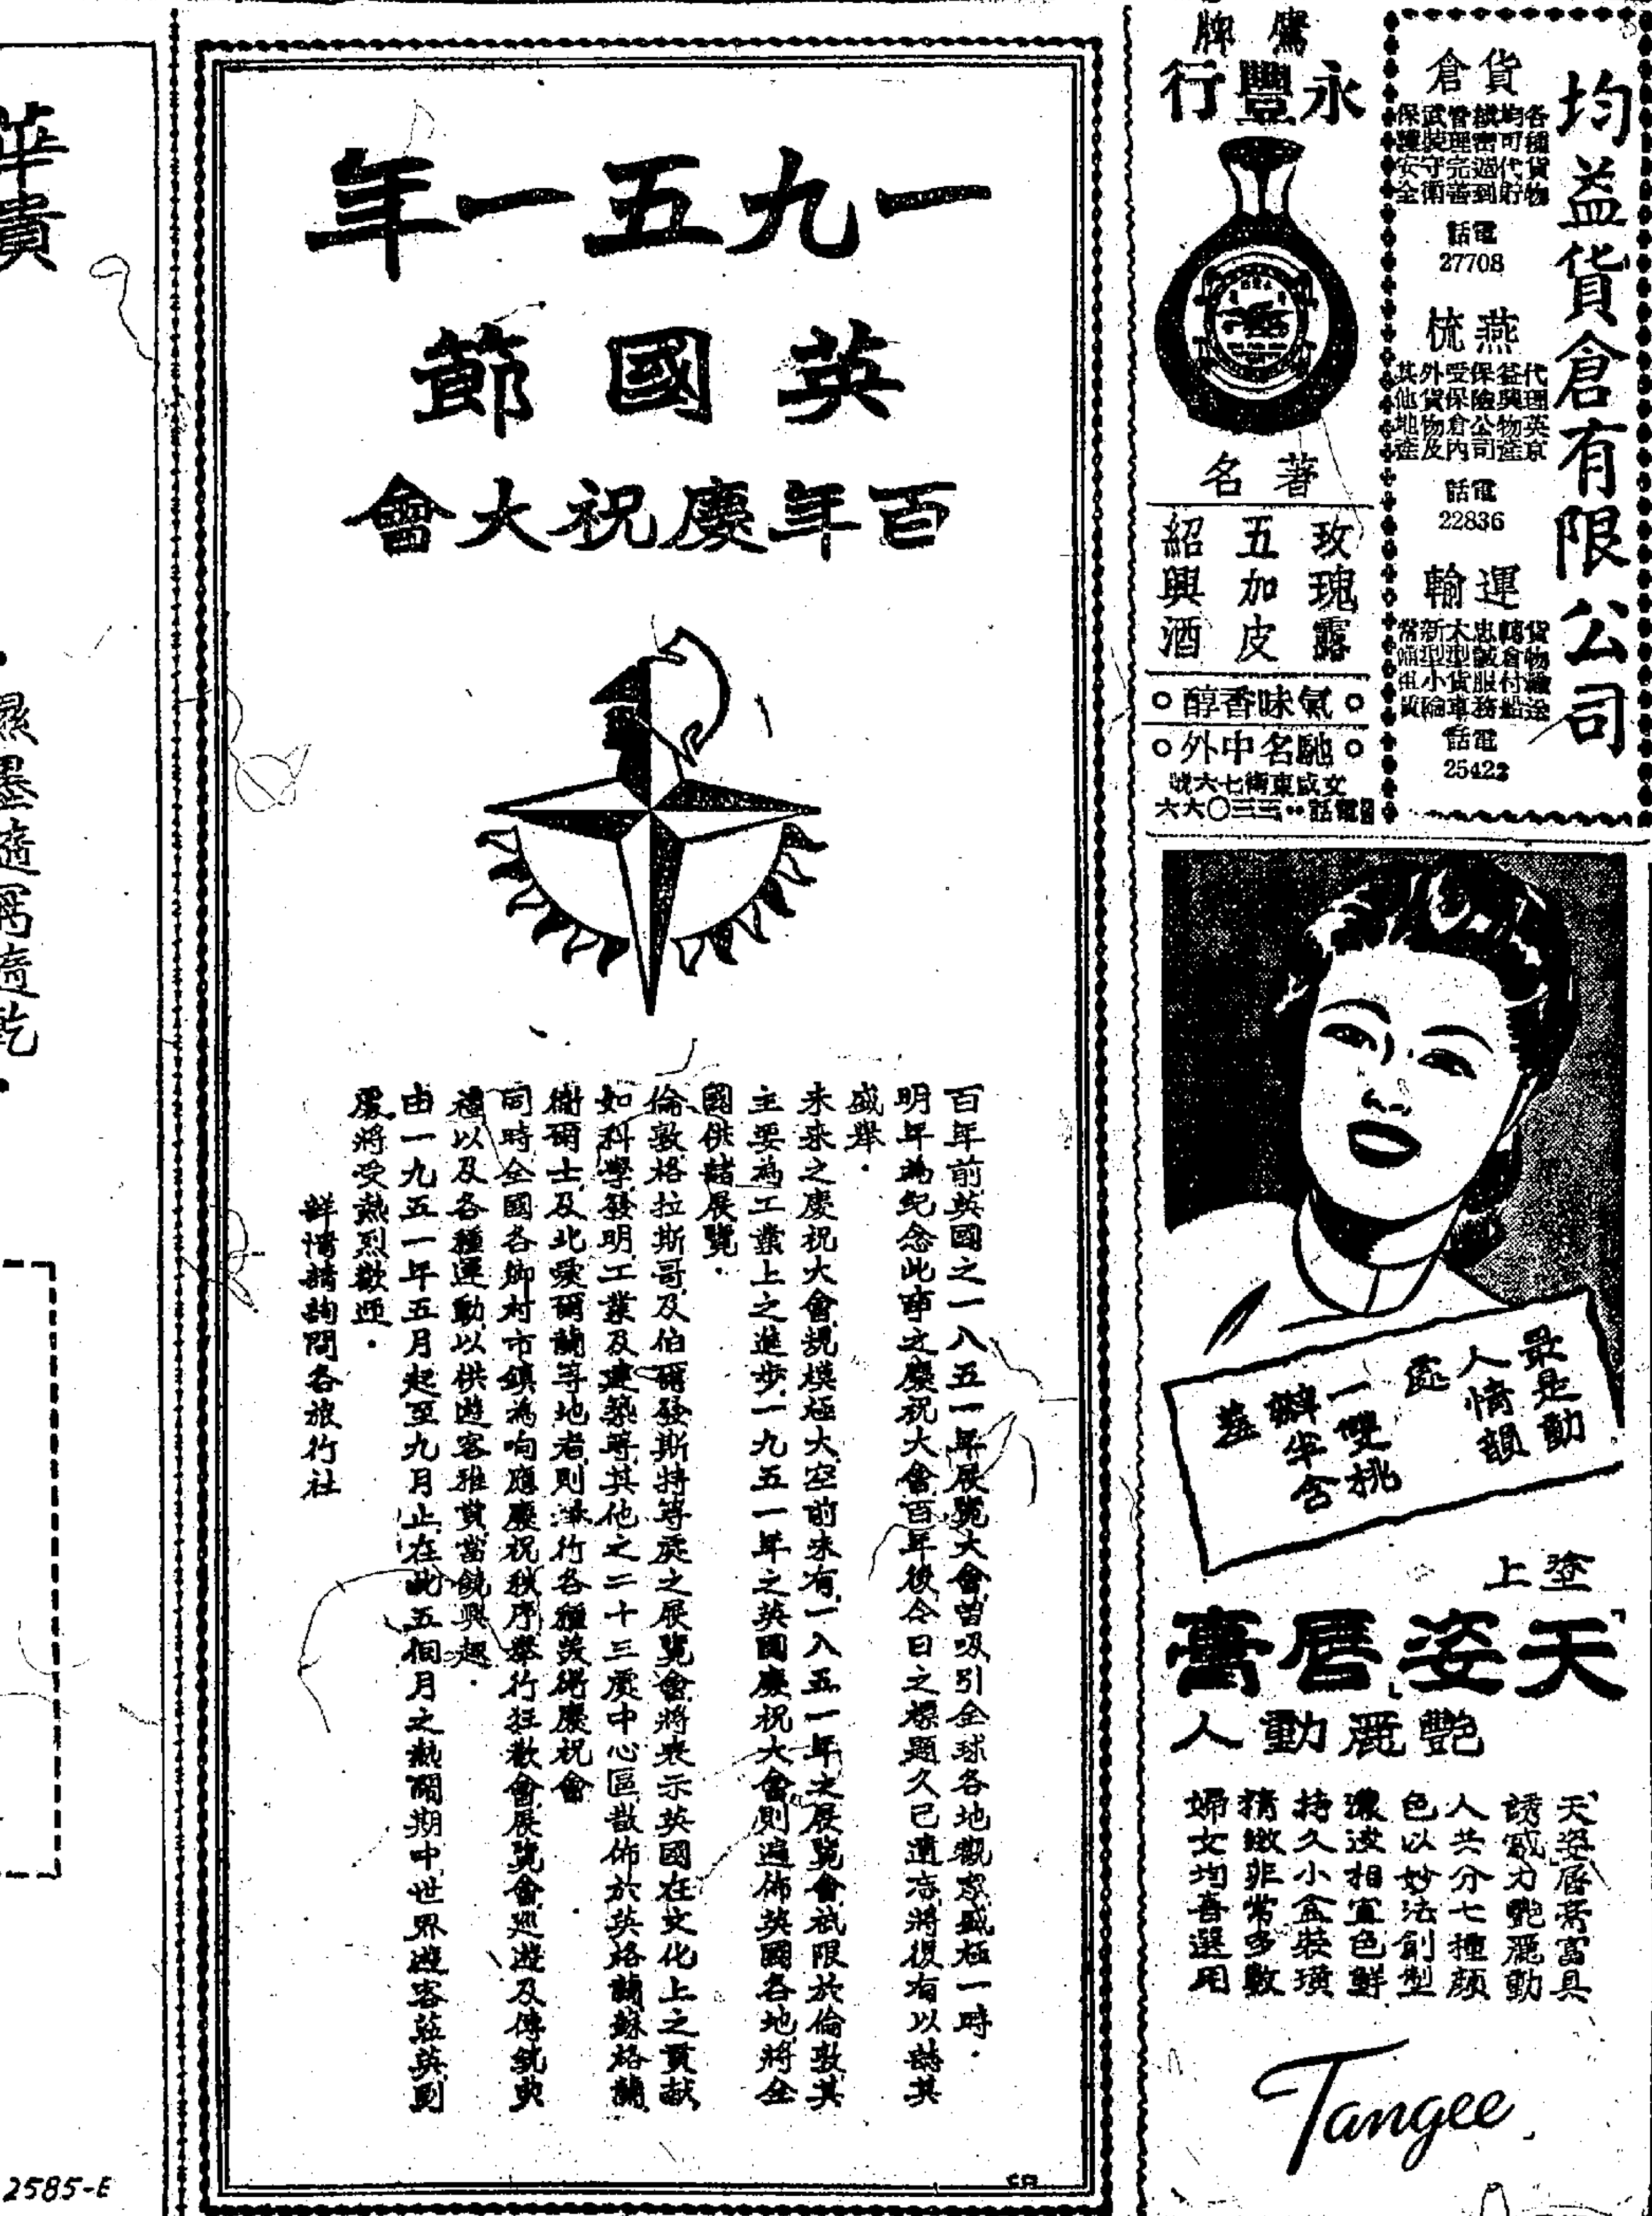 一九五一年
英國節
百年慶祝大會
百年前英國之一八五一年展覽大會曾吸引全球各地觀眾盛極一時.
明年為紀念此事之慶祝大會百年後今日之標題久已遺忘將復有以誌其
盛舉.
未來之慶祝大會規模極大空前未有一八五一年之展覽會祇限於倫敦其
主要為工業上之進步一九五一年之英國慶祝大會則遍佈英國各地將全
國供諸展覽.
倫敦格拉斯哥及伯爾發斯特等處之展覽會將表示英國在文化上之貢献
如科學發明工業及建築等其他之二十三處中心區散佈於英格蘭蘇格蘭
衛爾士及北愛爾蘭等地者則舉行各種美術慶祝會
同時全國各鄉村市鎮為响應慶祝秩序舉行狂歡會展覽會巡遊及傳統典
禮以及各種運動以供遊客雅賞當饒興趣.
由一九五一年五月起至九月止在此五個月之熱鬧期中世界遊客蒞英到
處將受熱烈歡迎.
詳情請詢問各旅行社
鷹牌
永豐行
著名
玫瑰露
五加皮
紹興酒
氣味香醇
馳名中外
文咸東街七六號
電話：三三〇六六
均益貨倉有限公司
貨倉
各種貨物
均可代貯
縝密週到
管理完善
武裝守衛
保護安全
電話
27708
燕梳
代理英京
益興物產
保險公司
受保倉內
外貨物及
其他地產
電話
22836
運輸
貨物
轉倉付船
忠誠服務
大型貨車
新型小輪
電話
25422
最是動
人情韻
處
一雙桃
瓣半含
羞
塗上
「天姿」唇膏
艷麗動人
「天姿」唇膏富具
誘惑力艷麗動
人共分七種顏
色以妙法創型
濃淡相宜色鮮
持久小盒裝璜
精緻非常多數
婦女均喜選用
Tangee
華貴
2585-E